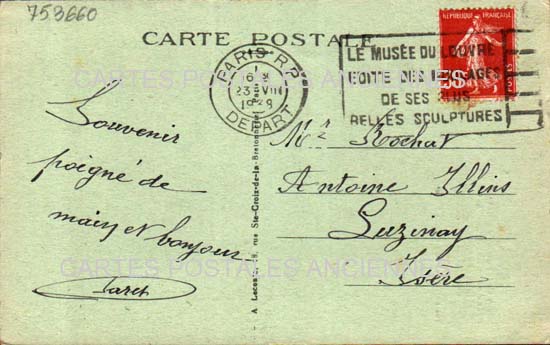 753660
CARTE POSTALE
RÉPUBLIQUE FRANÇAISE
POSTES
PARIS R.P.
16
23 VIII
1929
DEPART
LE MUSÉE DU LOUVRE
EDITE DES MOULAGES
DE SES PLUS
BELLES SCULPTURES
Souvenir
poigné de
main et bonjour
Mr Rochat
Antoine Illins
Luzinay
Isère
A. Leconte, 38, rue Ste-Croix-de-la-Bretonnerie, Paris
CARTES POSTALES ANCIENNES
CARTES POSTALES ANCIENNES